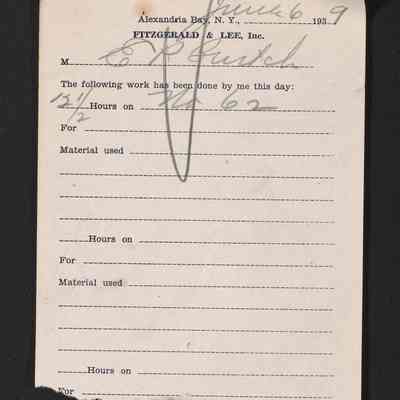 Alexandria Bay, N. Y., June 6 1939
FITZGERALD & LEE, Inc.
M E R
The following work has been done by me this day:
12 1/2 Hours on No 62
For
Material used
Hours on
For
Material used
Hours on
For